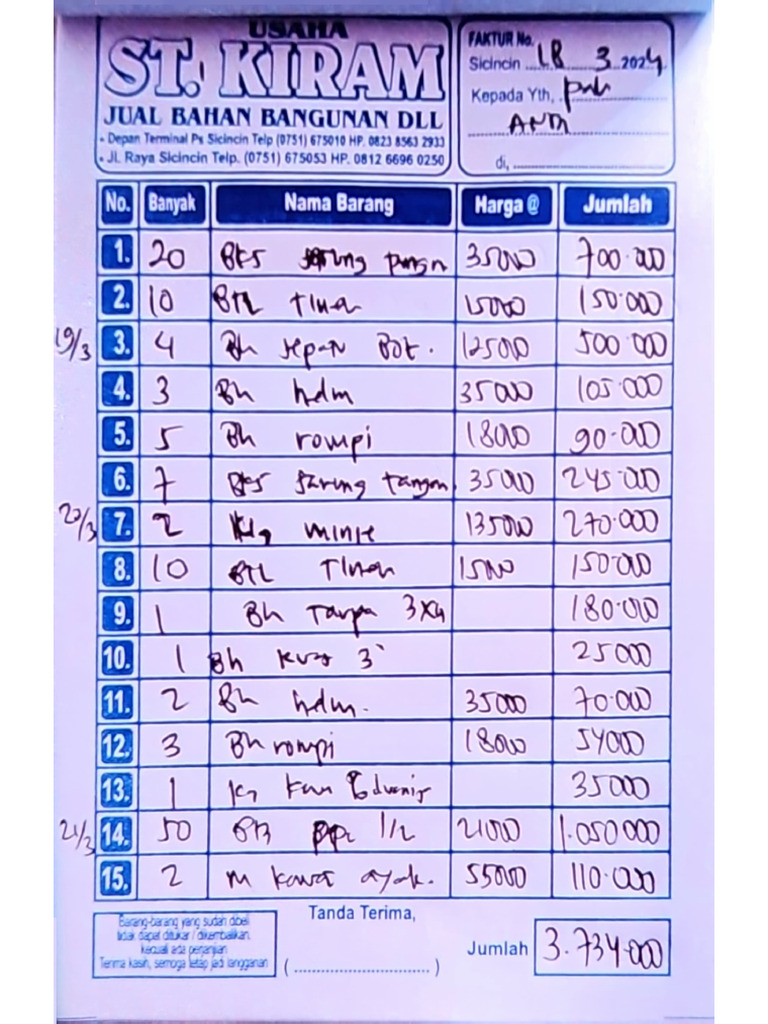 USAHA
ST. KIRAM
JUAL BAHAN BANGUNAN DLL
• Depan Terminal Ps Sicincin Telp (0751) 675010 HP. 0823 8563 2933
• Jl. Raya Sicincin Telp. (0751) 675053 HP. 0812 6696 0250
FAKTUR No.
Sicincin 18 3 2024
Kepada Yth, pak
ANTA
di,
No. Banyak Nama Barang Harga @ Jumlah
1. 20 Bks sarung tangan 35000 700.000
2. 10 BTL Tiner 15000 150.000
19/3 3. 4 Bh sepatu Bot. 125000 500.000
4. 3 Bh helm 35000 105.000
5. 5 Bh rompi 18000 90.000
6. 7 Bks sarung tangan 35000 245.000
20/3 7. 2 Klg minie 135000 270.000
8. 10 BTL Tiner 15000 150.000
9. 1 Bh Terpa 3x4 180.000
10. 1 Bh kuas 3" 25000
11. 2 Bh helm. 35000 70.000
12. 3 Bh rompi 18000 54000
13. 1 kg 35000
21/3 14. 50 1/2 21000 1.050000
15. 2 m kawat ayak. 55000 110.000
Barang-barang yang sudah dibeli
tidak dapat ditukar / dikembalikan,
kecuali ada perjanjian
Terima kasih, semoga tetap jadi langganan
Tanda Terima,
(..................................)
Jumlah 3.734.000